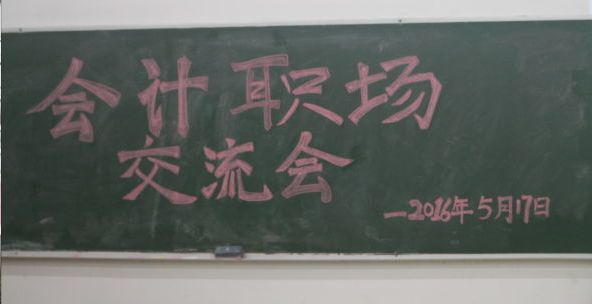 会计职场
交流会
—2016年5月17日